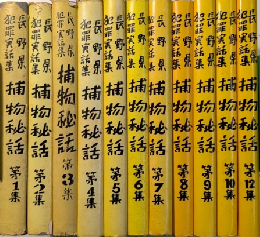 長野県
犯罪実話集
捕物秘話
第1集
長野県
犯罪実話集
捕物秘話
第2集
長野県
犯罪実話集
捕物秘話
第3集
長野県
犯罪実話集
捕物秘話
第4集
長野県
犯罪実話集
捕物秘話
第5集
長野県
犯罪実話集
捕物秘話
第6集
長野県
犯罪実話集
捕物秘話
第7集
長野県
犯罪実話集
捕物秘話
第8集
長野県
犯罪実話集
捕物秘話
第9集
長野県
犯罪実話集
捕物秘話
第10集
長野県
犯罪実話集
捕物秘話
第12集